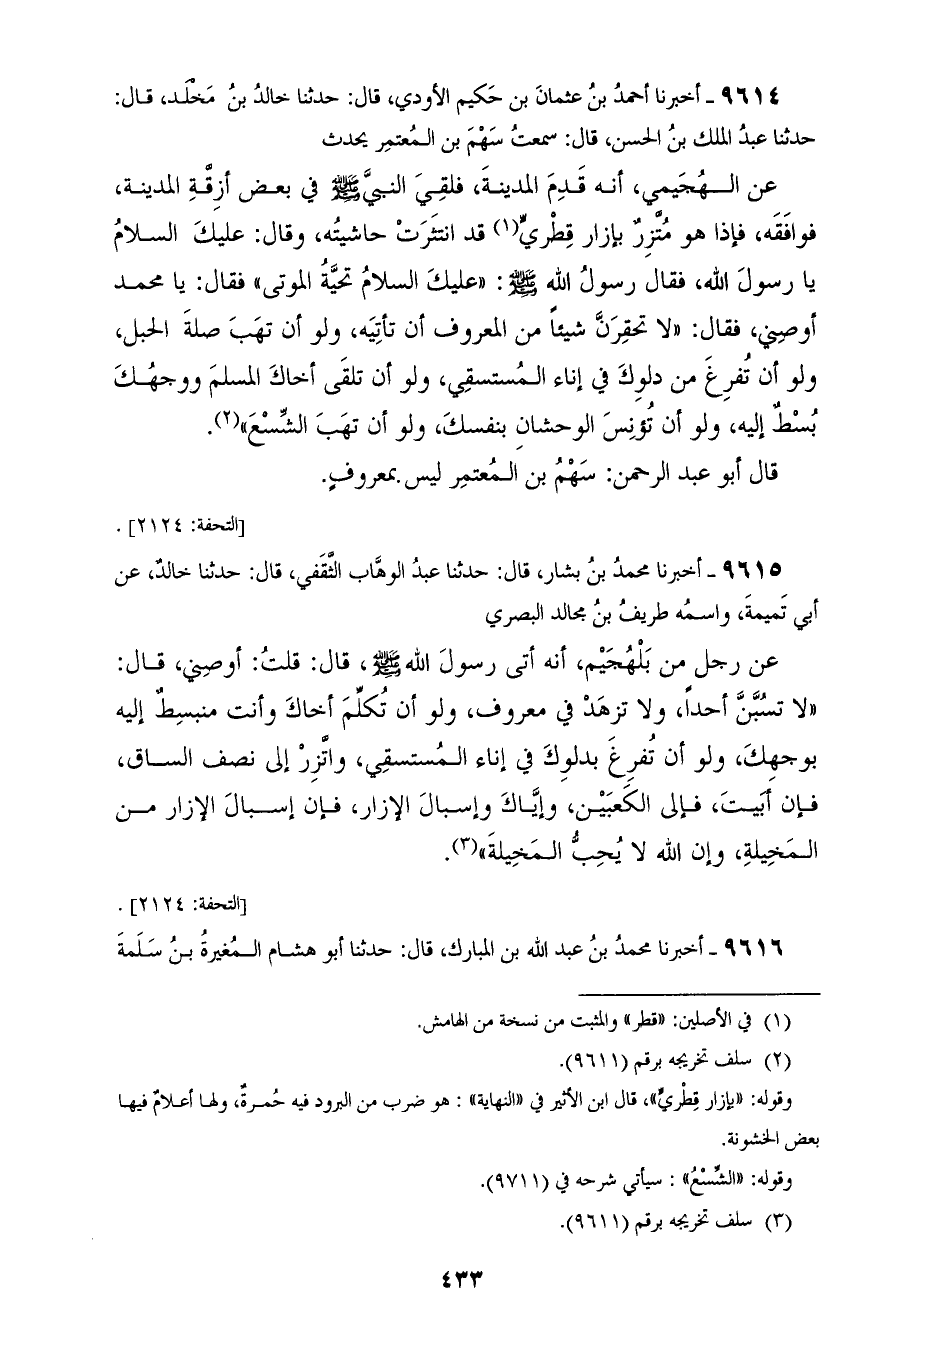 ٩٦١٤ ـ أخبرنا أحمدُ بنُ عثمانَ بن حَكيم الأودي، قال: حدثنا خالدُ بنُ مَخْلَد، قال:
حدثنا عبدُ الملك بنُ الحسن، قال: سمعتُ سَهْمَ بن الـمُعتمِر يحدث
عن الـهُجَيمي، أنه قَدِمَ المدينةَ، فلقِيَ النبيَّ ﷺ في بعض أزقَّةِ المدينة،
فوافَقَه، فإذا هو مُتَّزِرٌ بإزار قِطْريٍّ(١) قد انتثَرَتْ حاشيتُه، وقال: عليكَ السلامُ
يا رسولَ الله، فقال رسولُ الله ﷺ: «عليكَ السلامُ تحيَّةُ الموتى» فقال: يا محمد
أوصِني، فقال: «لا تحقِرَنَّ شيئاً من المعروف أن تأتِيَه، ولو أن تهَبَ صلةَ الحبل،
ولو أن تُفرِغَ من دلوِكَ في إناء الـمُستسقِي، ولو أن تلقَى أخاكَ المسلمَ ووجهُكَ
بُسْطٌ إليه، ولو أن تُؤنِسَ الوحشانِ بنفسكَ، ولو أن تهَبَ الشِّسْعَ»(٢).
قال أبو عبد الرحمن: سَهْمُ بن الـمُعتمِر ليس بمعروفٍ.
[التحفة: ٢١٢٤] .
٩٦١٥ ـ أخبرنا محمدُ بنُ بشار، قال: حدثنا عبدُ الوهَّاب الثَّقَفي، قال: حدثنا خالدٌ، عن
أبي تَميمةَ، واسمُه طريفُ بنُ مجالد البصري
عن رجل من بَلْهُجَيْم، أنه أتى رسولَ الله ﷺ، قال: قلتُ: أوصِني، قال:
«لا تسُبَّنَّ أحداً، ولا تزهَدْ في معروف، ولو أن تُكلِّمَ أخاكَ وأنت منبسِطٌ إليه
بوجهِكَ، ولو أن تُفرِغَ بدلوِكَ في إناء الـمُستسقِي، واتَّزِرْ إلى نصف الساق،
فإن أبَيتَ، فإلى الكَعبَيْن، وإيَّاكَ وإسبالَ الإزار، فإن إسبالَ الإزار من
الـمَخِيلةِ، وإن الله لا يُحِبُّ الـمَخِيلةَ»(٣).
[التحفة: ٢١٢٤] .
٩٦١٦ ـ أخبرنا محمدُ بنُ عبد الله بن المبارك، قال: حدثنا أبو هشام الـمُغيرةُ بنُ سَلَمةَ
(١) في الأصلين: «قطر» والمثبت من نسخة من الهامش.
(٢) سلف تخريجه برقم (٩٦١١).
وقوله: «بإزار قِطْريٍّ»، قال ابن الأثير في «النهاية» : هو ضرب من البرود فيه حُمرةٌ، ولها أعلامٌ فيها
بعض الخشونة.
وقوله: «الشِّسْعُ» : سيأتي شرحه في (٩٧١١).
(٣) سلف تخريجه برقم (٩٦١١).
٤٣٣